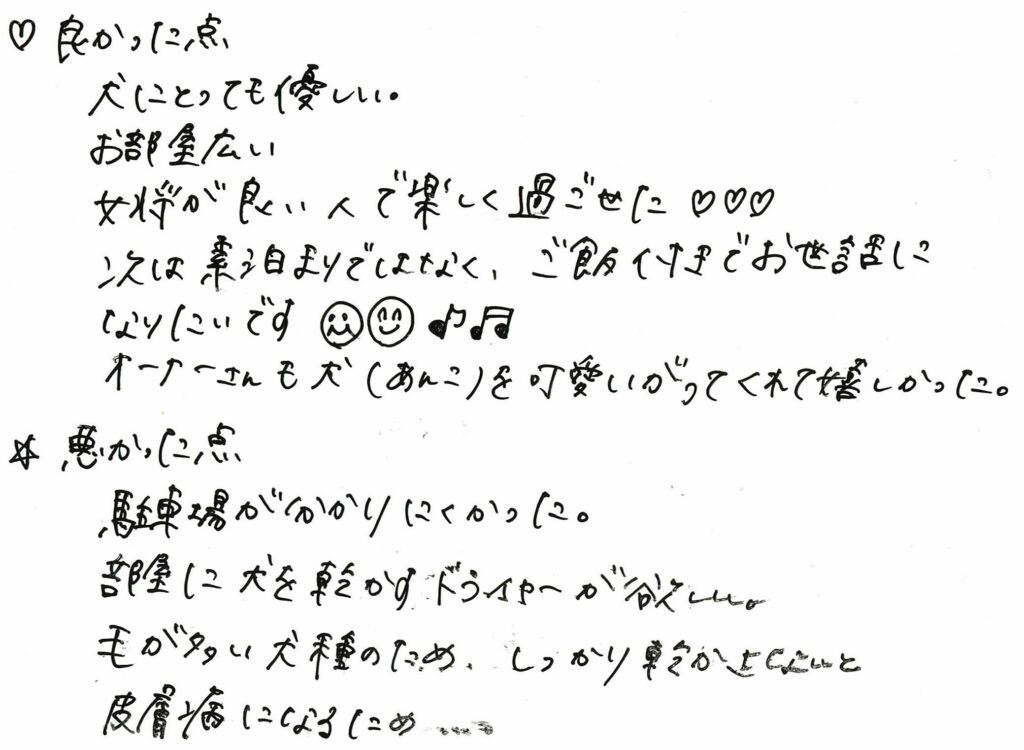 ♡ 良かった点
犬にとっても優しい。
お部屋広い
女将が良い人で楽しく過ごせた ♡♡♡
次は素泊まりではなく、ご飯付きでお世話に
なりたいです ☺☺ ♪♫
オーナーさんも犬(あんこ)を可愛いがってくれて嬉しかった。
☆ 悪かった点
駐車場が分かりにくかった。
部屋に犬を乾かすドライヤーが欲しい。
毛が多い犬種のため、しっかり乾かさないと
皮膚病になるため....。